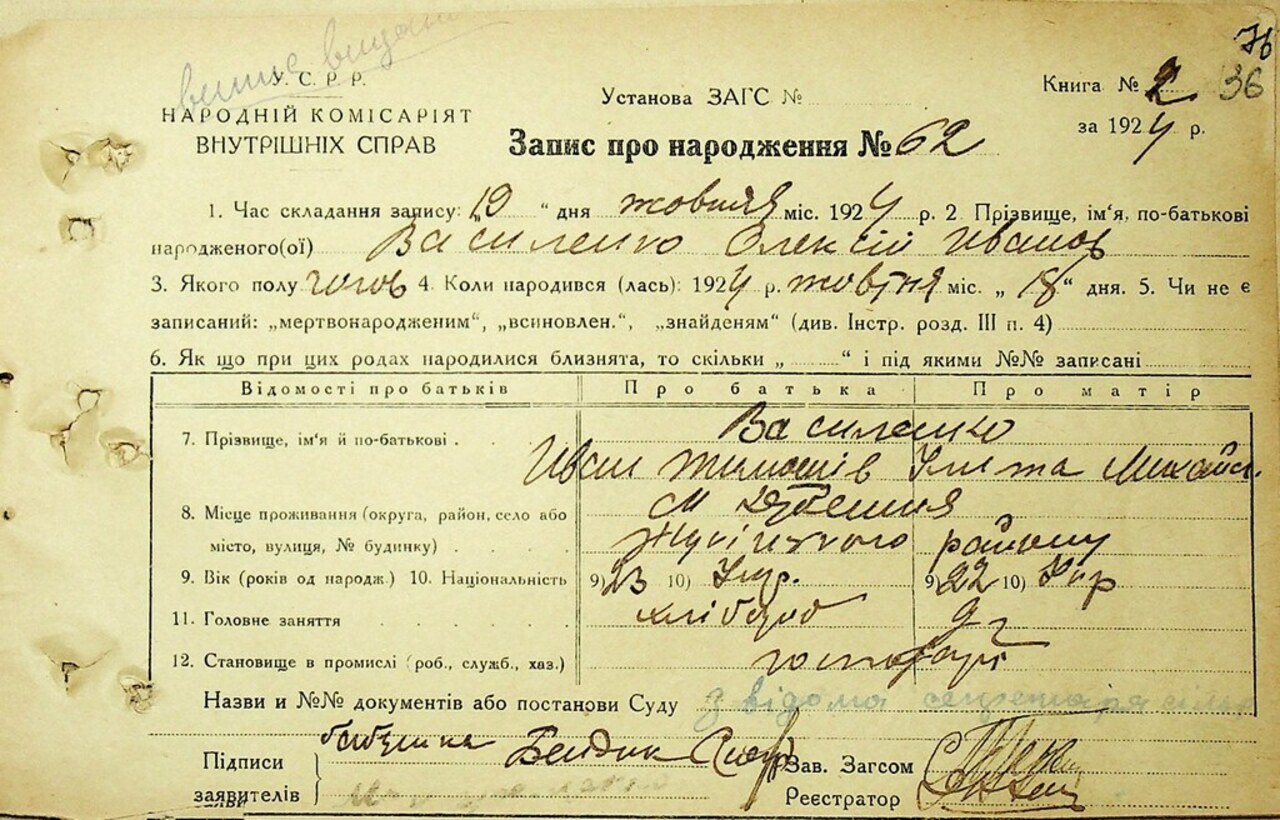 випис видан
76
36
У. С. Р. Р.
НАРОДНІЙ КОМІСАРІЯТ
ВНУТРІШНІХ СПРАВ
Установа ЗАГС №
Книга № 2
за 1924 р.
Запис про народження № 62
1. Час складання запису: „19 “ дня жовтня міс. 1924 р. 2 Прізвище, ім'я, по-батькові
народженого(ої) Василенко Олексій Иванов
3. Якого полу чолов 4. Коли народився (лась): 1924 р. жовтня міс. „ 18 “ дня. 5. Чи не є
записаний: „мертвонародженим“, „всиновлен.“, „знайденям“ (див. Інстр. розд. III п. 4)
6. Як що при цих родах народилися близнята, то скільки „ “ і під якими №№ записані
Відомості про батьків Про батька Про матір
7. Прізвище, ім'я й по-батькові . Василенко
Иван Улита Михайл.
8. Місце проживання (округа, район, село або
місто, вулиця, № будинку) . району
9. Вік (років од народж.) 10. Національність 9) 23 10) Укр. 9) 22 10) Укр
11. Головне заняття хлібороб
12. Становище в промислі (роб., служб., хаз.) господарі
Назви и №№ документів або постанови Суду з відома секретаря сіль
Підписи бабушка Бендик
заявителів
Зав. Загсом
Реєстратор